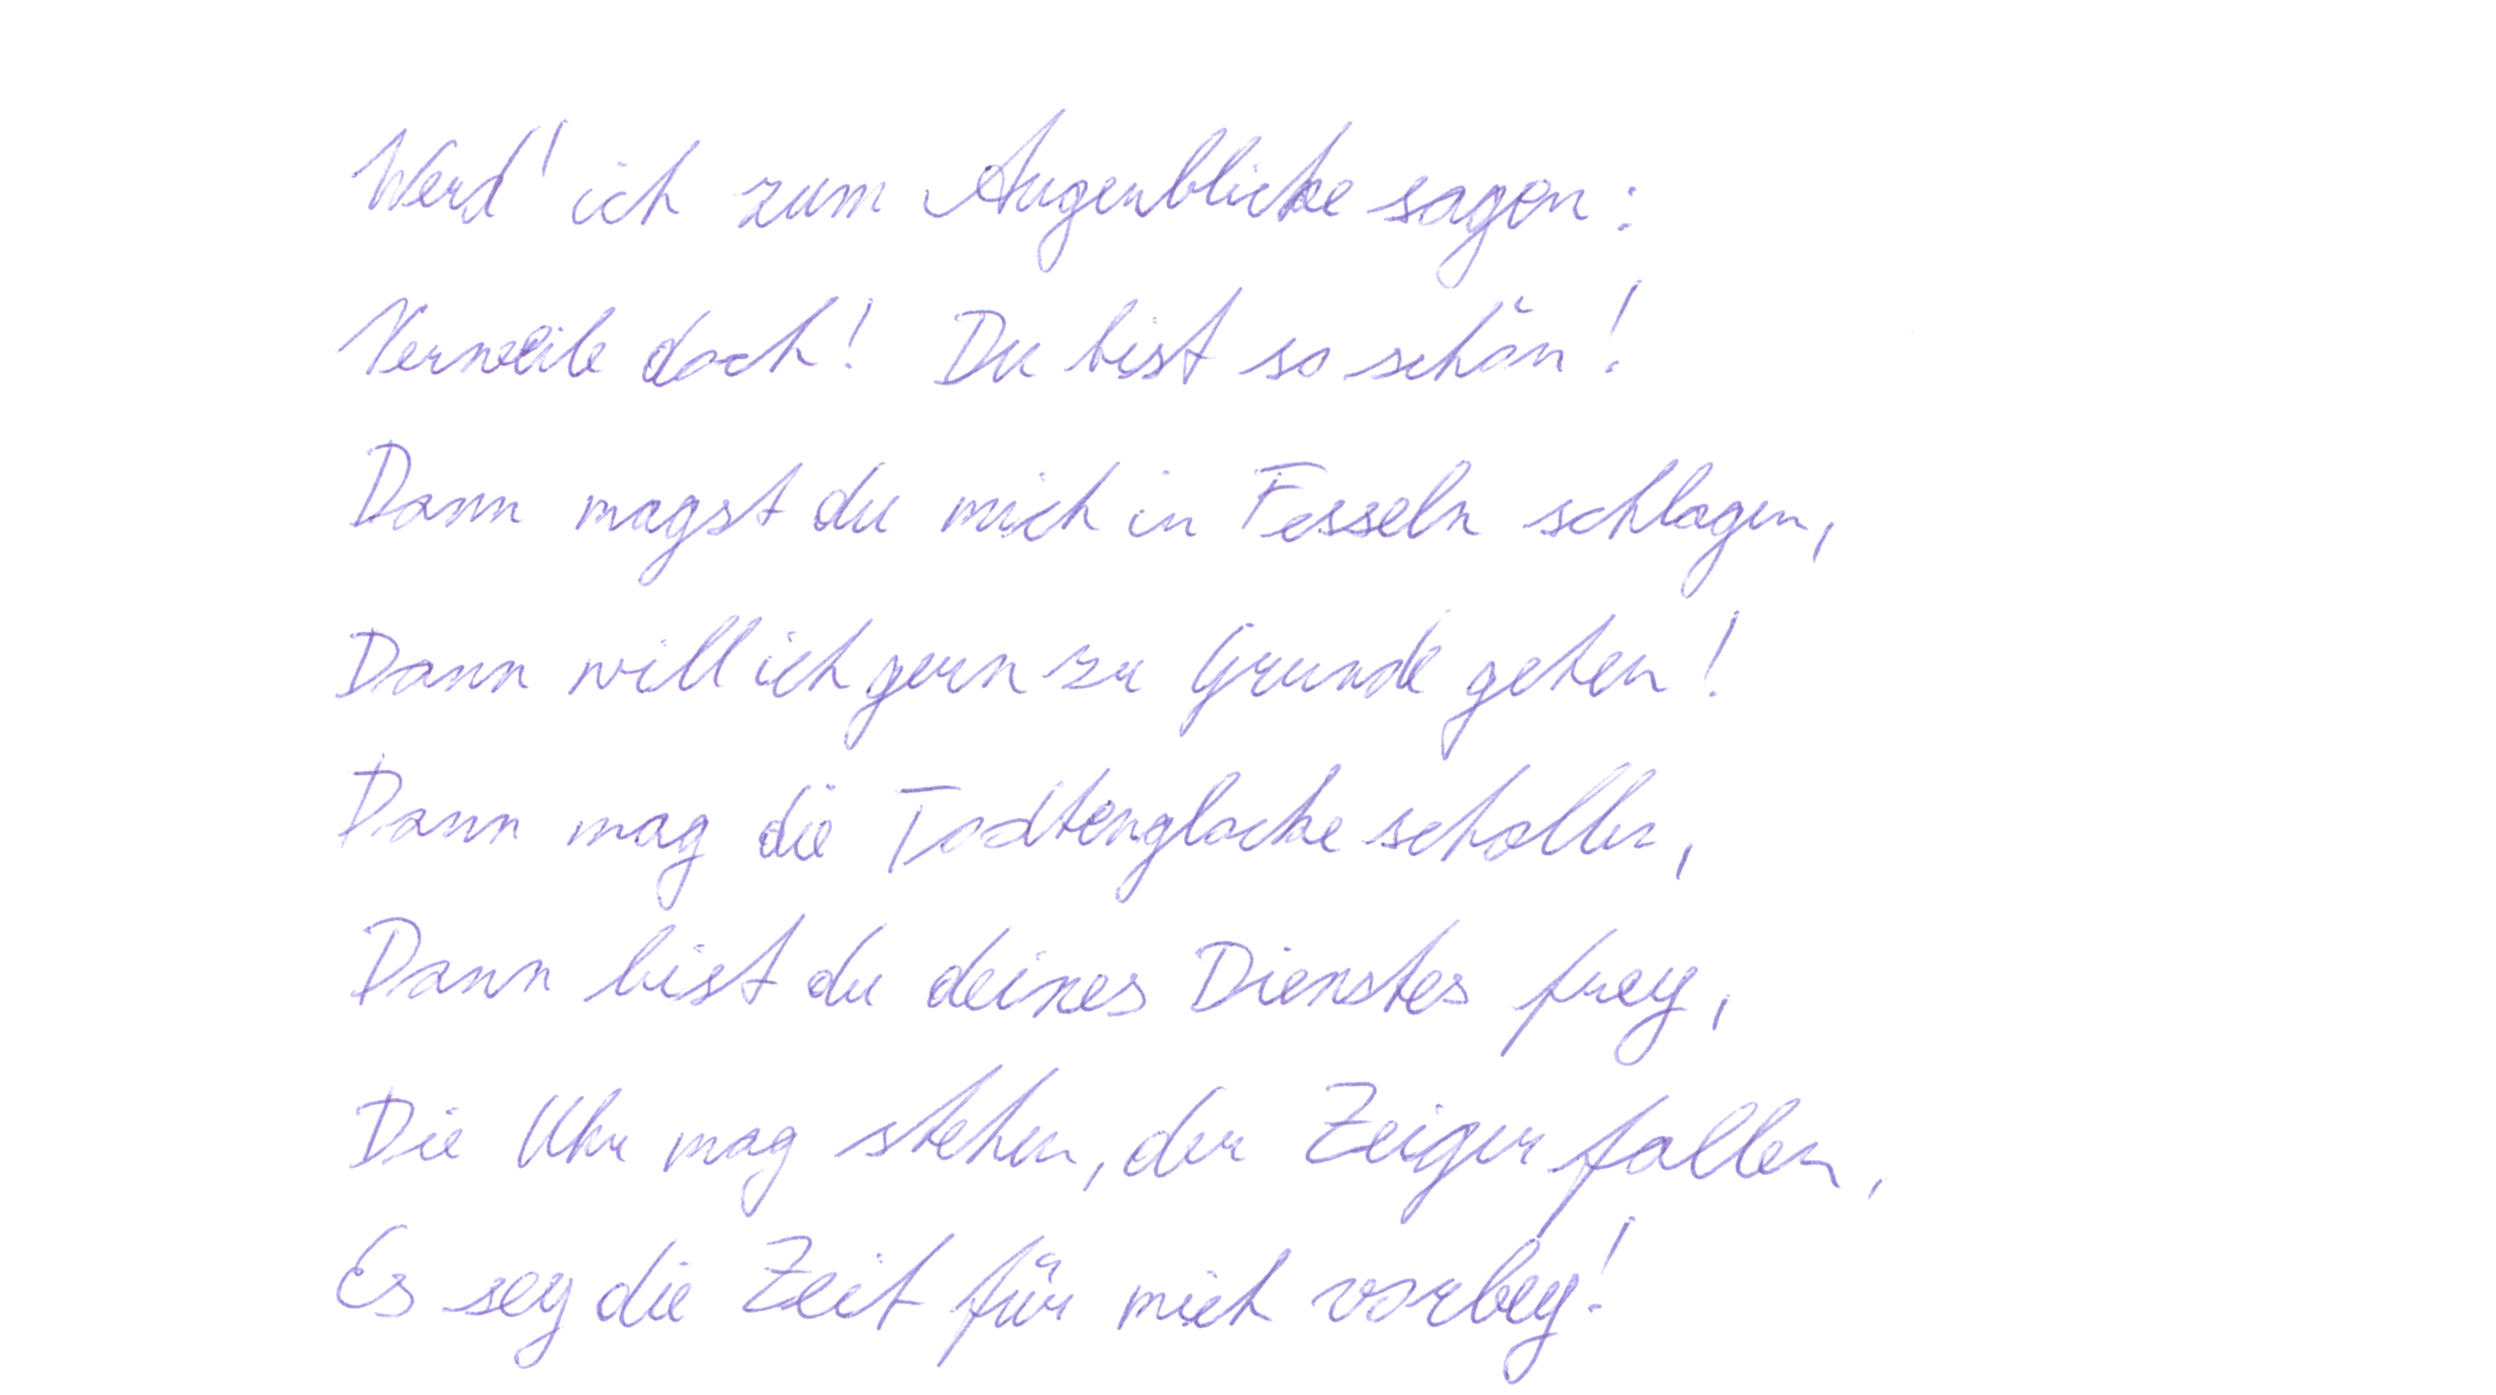 Werd' ich zum Augenblicke sagen:
Verweile doch! Du bist so schön!
Dann magst du mich in Fesseln schlagen,
Dann will ich gern zu Grunde gehen!
Dann mag die Todtenglocke schallen,
Dann bist du deines Dienstes frey,
Die Uhr mag stehen, der Zeiger fallen,
Es sey die Zeit für mich vorbey!